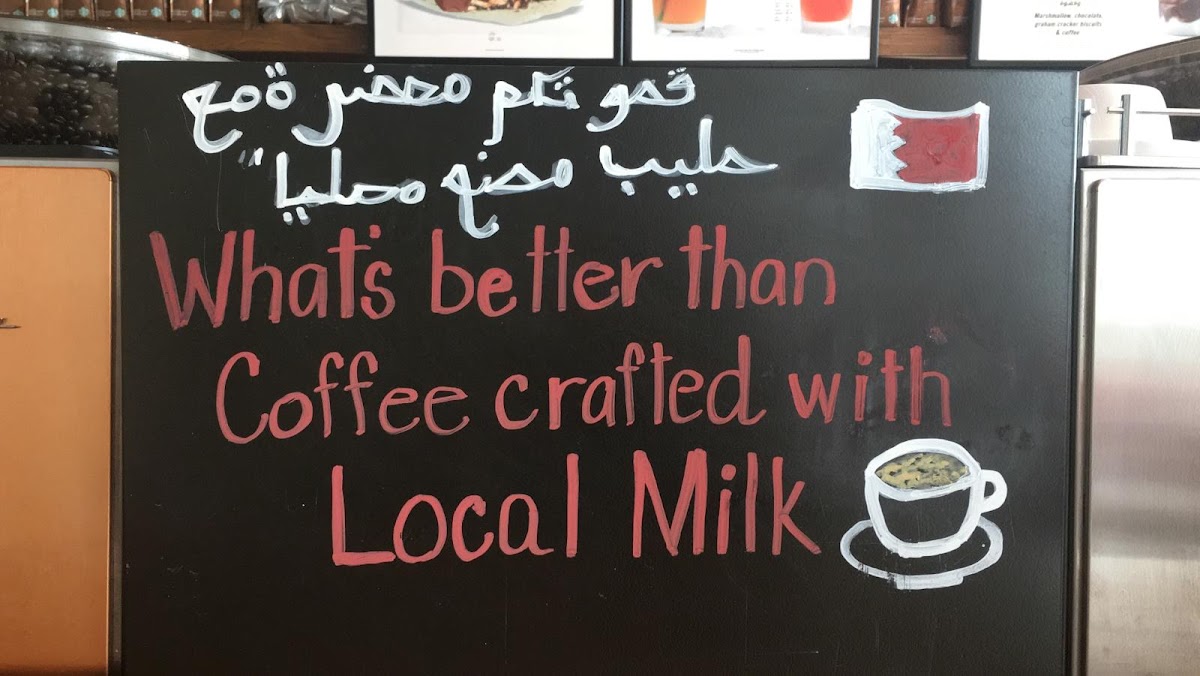 Marshmallow, chocolate,
graham cracker biscuits
& coffee
قهوتكم محضرة مع
حليب مصنع محلياً
What's better than
Coffee crafted with
Local Milk